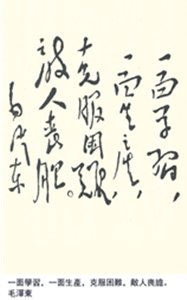 一面学習，
一面生产，
克服困难，
敌人丧胆。
毛泽东
一面學習，一面生產，克服困難，敵人喪膽。
毛澤東